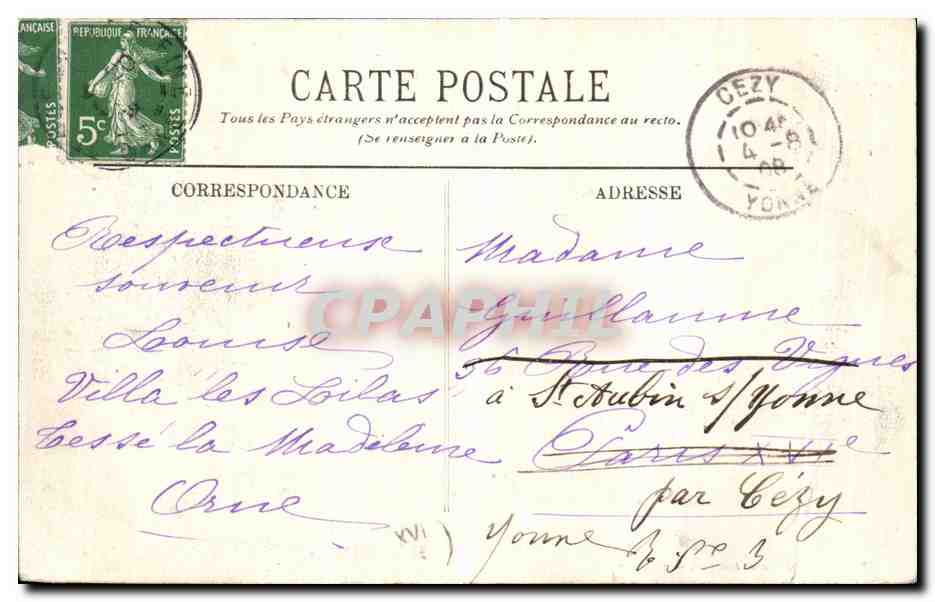 ANÇAISE
POSTES
REPUBLIQUE FRANÇAISE
5c
POSTES
CARTE POSTALE
Tous les Pays étrangers n'acceptent pas la Correspondance au recto.
(Se renseigner a la Poste).
CEZY
10 4
4 -8
08
YONNE
CORRESPONDANCE
Respectueux
souvenir
Louise
Villa les Lilas
Tessé la Madeleine
Orne
ADRESSE
Madame
Guillaume
36 Rue des Vignes
à St Aubin s/Yonne
Paris XVIe
par Cézy
Yonne
XVI
CPAPHIL